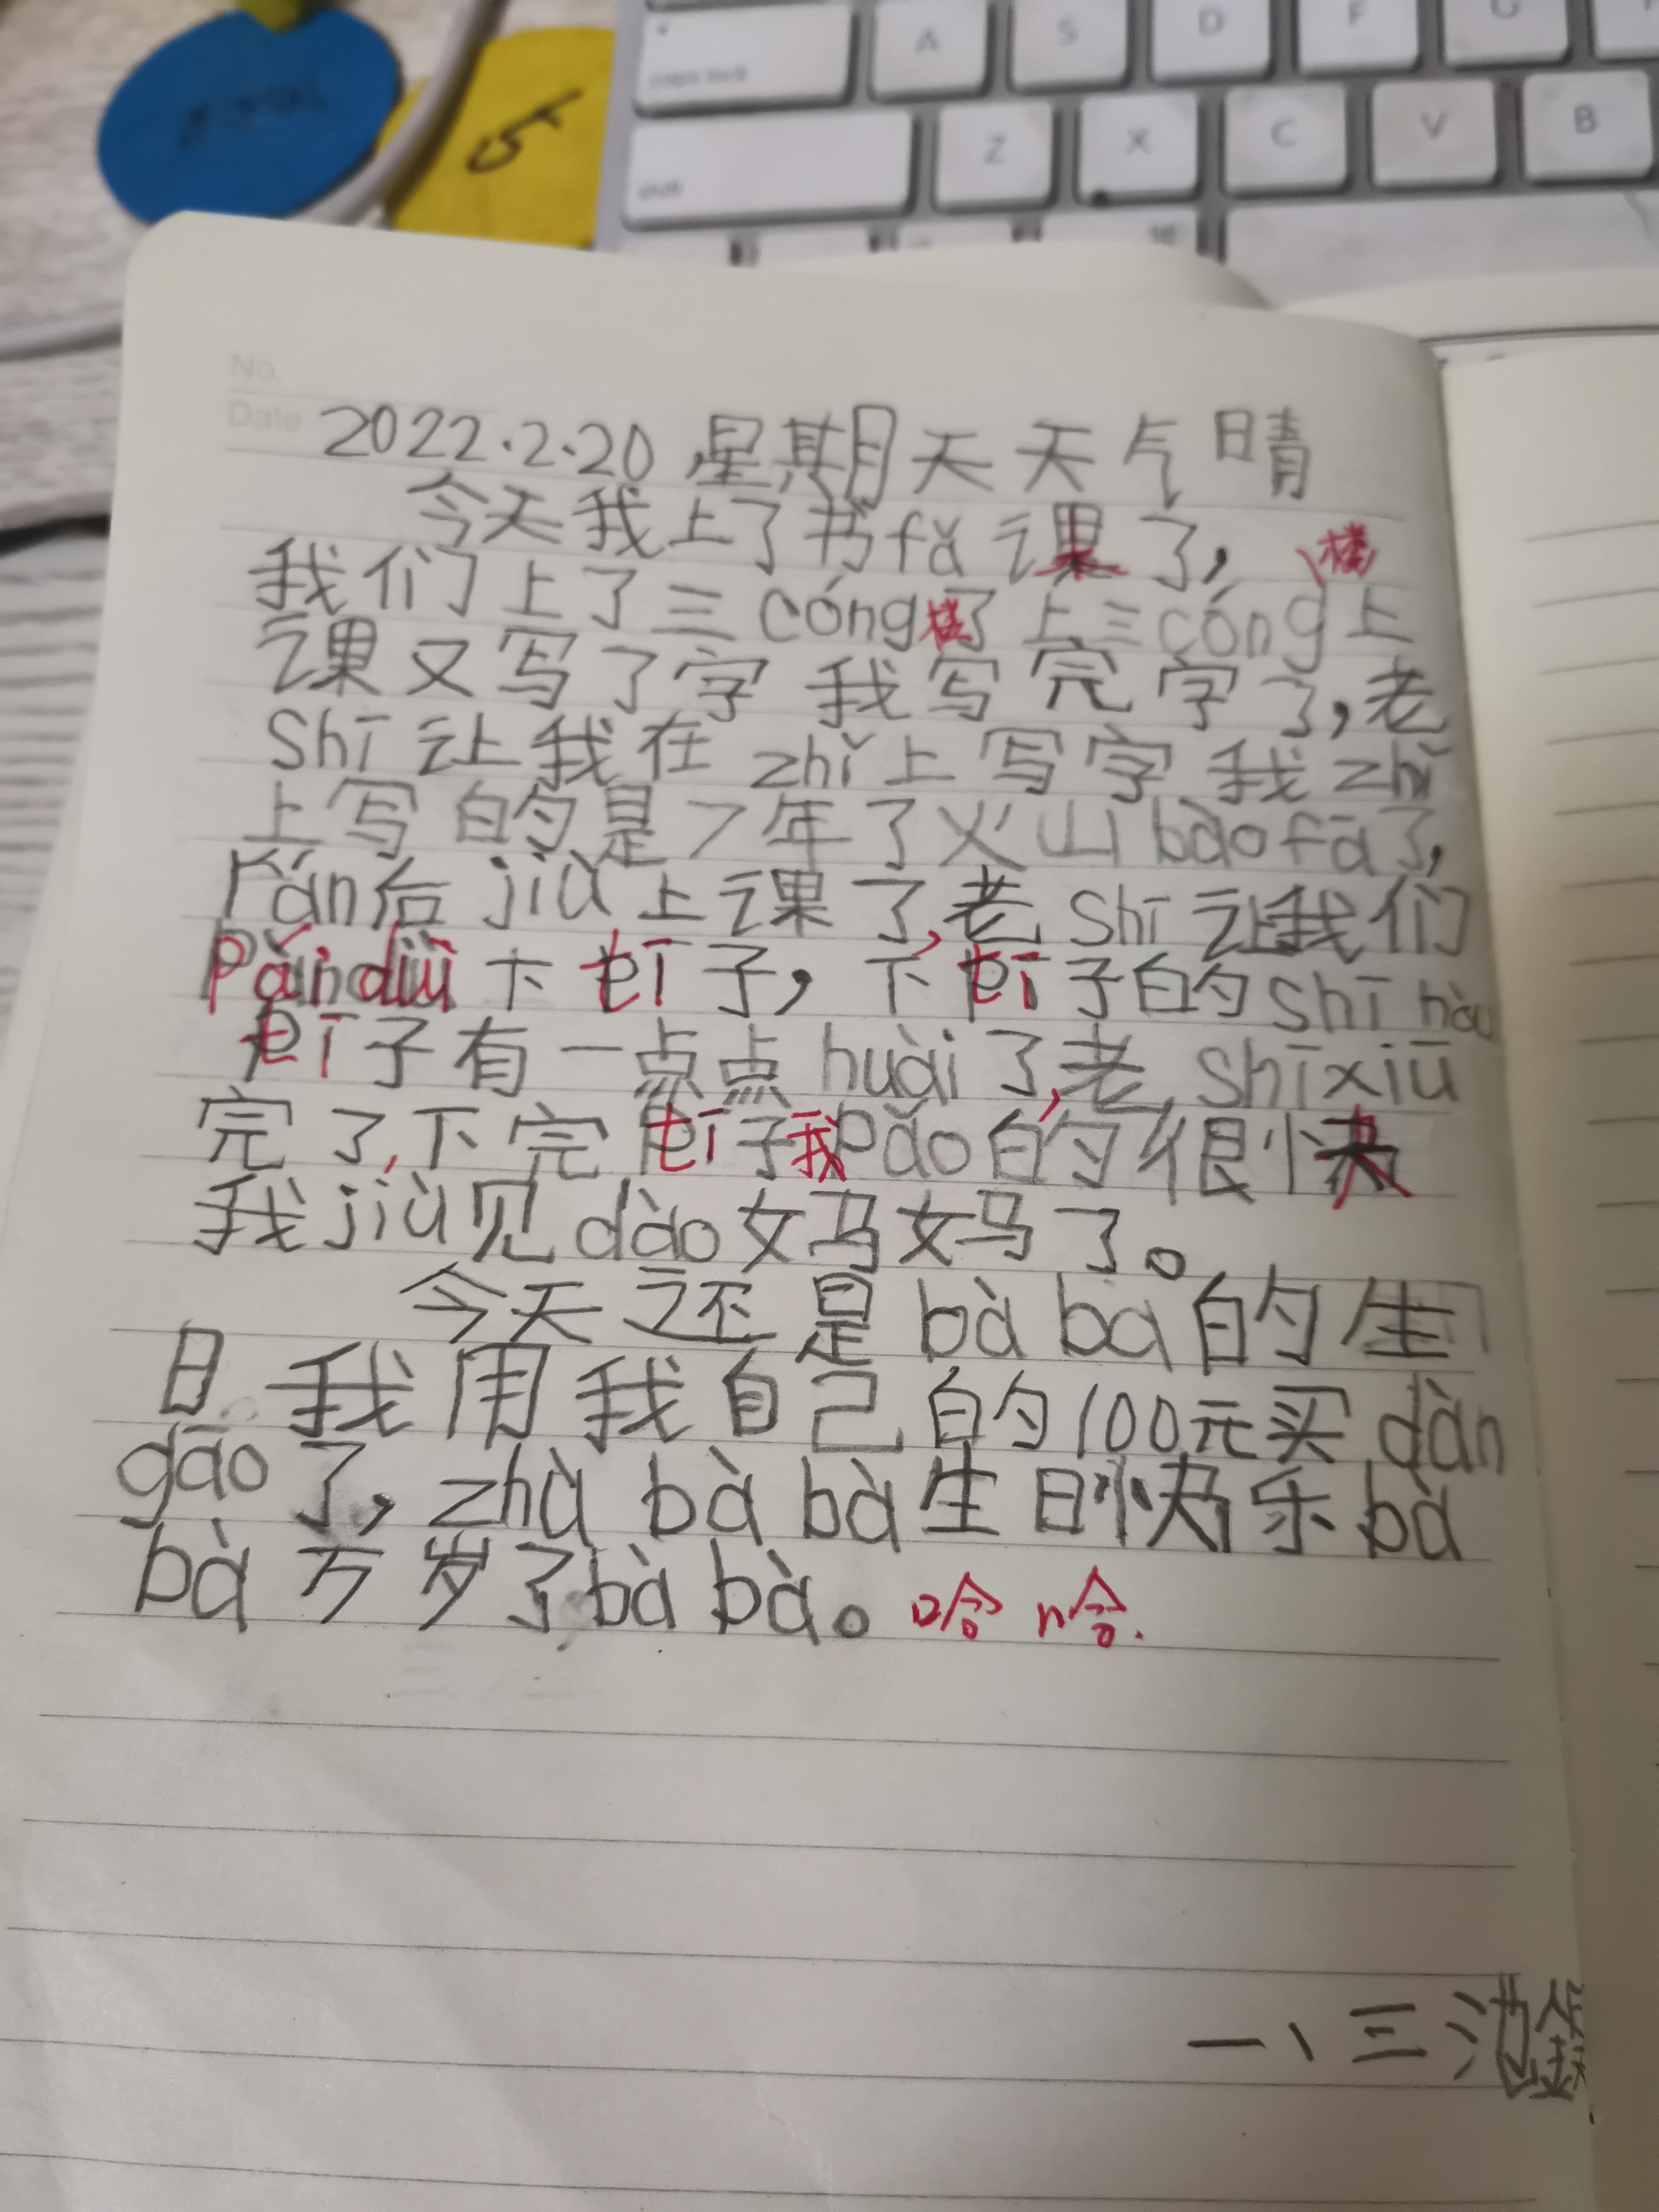 A S D F G
caps lock
Z X C V B
shift
5
No.
Date 2022.2.20 星期天 天气晴
今天我上了书fǎ课了,
楼
我们上了三cóng楼了上三cóng上
课又写了字 我写完字了,老
Shī让我在zhǐ上写字 我zhǐ
上写的是7年了火山bàofā了,
rán后jiù上课了,老Shī让我们
下tī子,下tī子的shī hàu
tī子有一点点huài了,老shīxiū
完了,下完tī子我pǎo的很快
我jiù见dào妈妈了。
今天还是bà ba的生
日 我用我自己的100元买dàn
gāo了, zhù bà bà生日快乐bà
bà万岁了bà bà。哈哈.
一、三